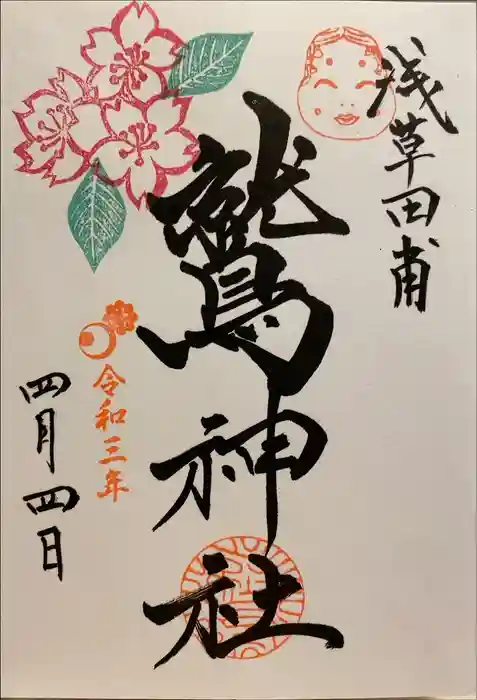 浅草田甫
鷲神社
令和三年
四月四日